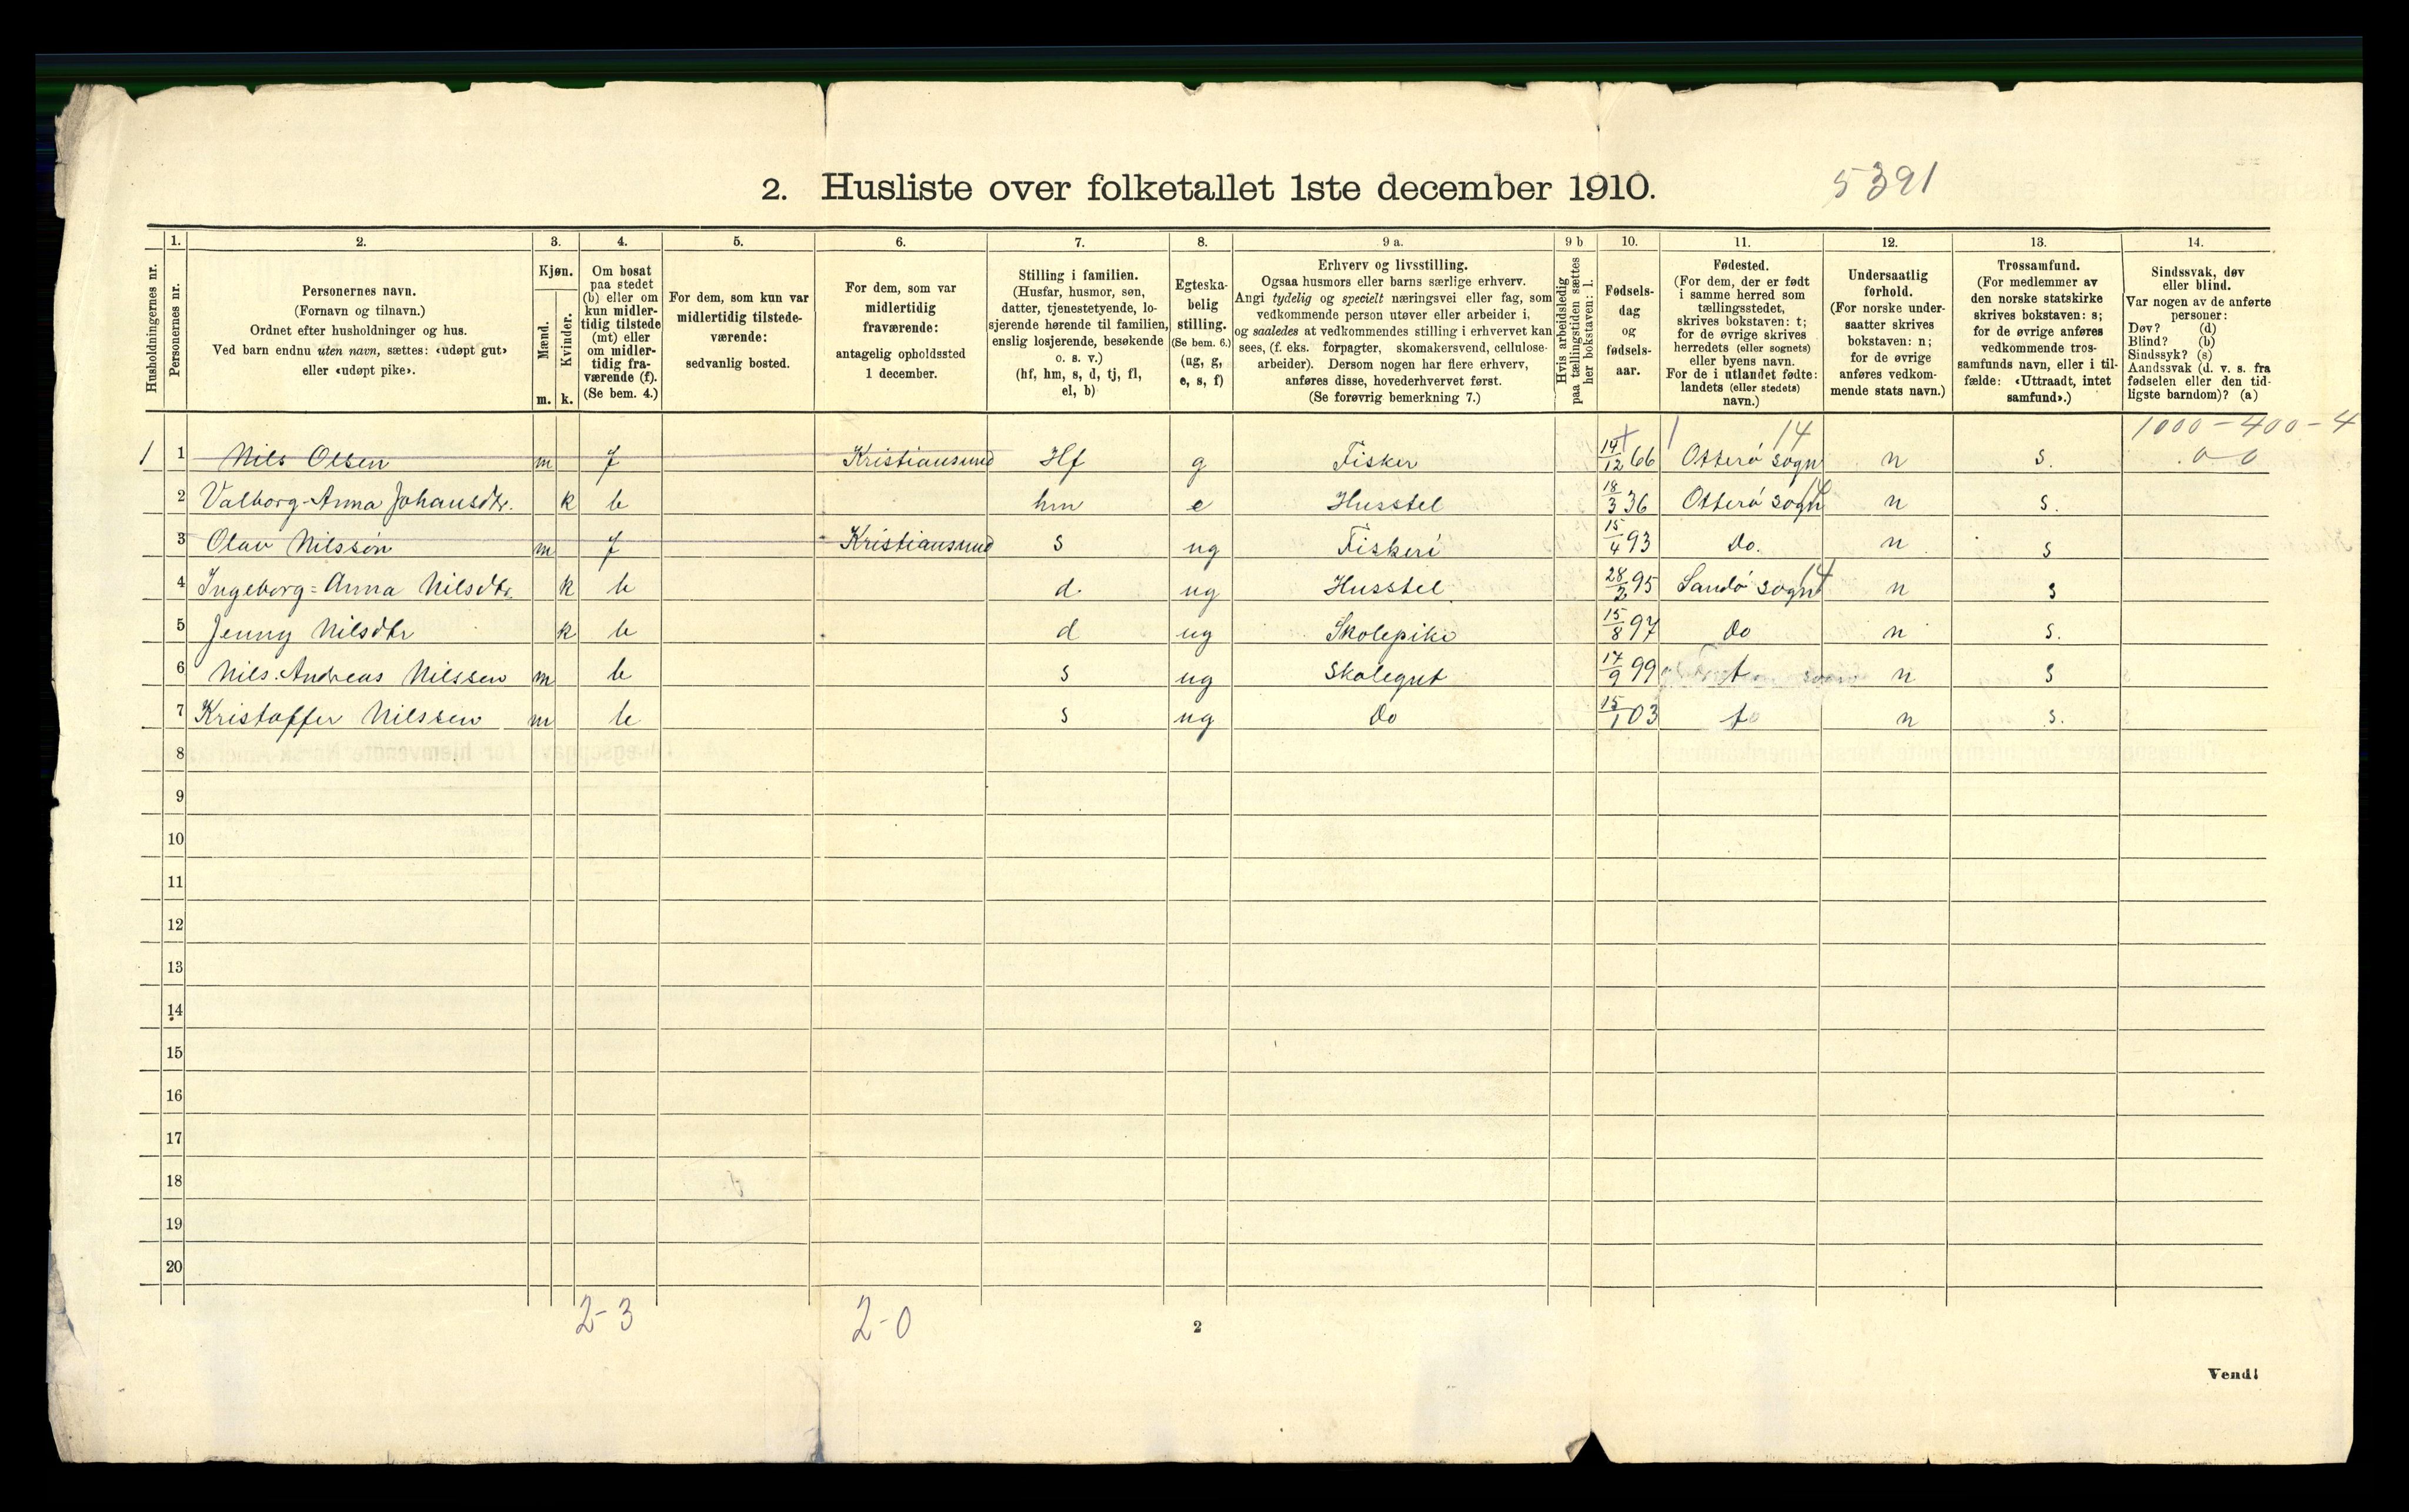 2. Husliste over folketallet 1ste december 1910.
5391
Husholdningernes nr.
1.
Personernes nr.
2.
Personernes navn.
(Fornavn og tilnavn.)
Ordnet efter husholdninger og hus.
Ved barn endnu uten navn, sættes: «udøpt gut»
eller «udøpt pike».
3.
Kjøn.
Mænd.
Kvinder.
m. k.
4.
Om bosat
paa stedet
(b) eller om
kun midler-
tidig tilstede
(mt) eller
om midler-
tidig fra-
værende (f).
(Se bem. 4.)
5.
For dem, som kun var
midlertidig tilstede-
værende:
sedvanlig bosted.
6.
For dem, som var
midlertidig
fraværende:
antagelig opholdssted
1 december.
7.
Stilling i familien.
(Husfar, husmor, søn,
datter, tjenestetyende, lo-
sjerende hørende til familien,
enslig losjerende, besøkende
o. s. v.)
(hf, hm, s, d, tj, fl,
el, b)
8.
Egteska-
belig
stilling.
(Se bem. 6.)
(ug, g,
e, s, f)
9 a.
Erhverv og livsstilling.
Ogsaa husmors eller barns særlige erhverv.
Angi tydelig og specielt næringsvei eller fag, som
vedkommende person utøver eller arbeider i,
og saaledes at vedkommendes stilling i erhvervet kan
sees, (f. eks. forpagter, skomakersvend, cellulose-
arbeider). Dersom nogen har flere erhverv,
anføres disse, hovederhvervet først.
(Se forøvrig bemerkning 7.)
9 b
Hvis arbeidsledig
paa tællingstiden sættes
her bokstaven: l.
10.
Fødsels-
dag
og
fødsels-
aar.
11.
Fødested.
(For dem, der er født
i samme herred som
tællingsstedet,
skrives bokstaven: t;
for de øvrige skrives
herredets (eller sognets)
eller byens navn.
For de i utlandet fødte:
landets (eller stedets)
navn.)
12.
Undersaatlig
forhold.
(For norske under-
saatter skrives
bokstaven: n;
for de øvrige
anføres vedkom-
mende stats navn.)
13.
Trossamfund.
(For medlemmer av
den norske statskirke
skrives bokstaven: s;
for de øvrige anføres
vedkommende tros-
samfunds navn, eller i til-
fælde: «Uttraadt, intet
samfund».)
14.
Sindssvak, døv
eller blind.
Var nogen av de anførte
personer:
Døv? (d)
Blind? (b)
Sindssyk? (s)
Aandssvak (d. v. s. fra
fødselen eller den tid-
ligste barndom)? (a)
1 14 1000-400-4
1 1 Nils Olsen m f Kristiansund Hf g Fisker 14/12 66 Otterø sogn n s. 0-0
2 Valborg-Anna Johansdtr. k b hm e Husstel 18/3 36 Otterø sogn 14 n s.
3 Olav Nilssøn m f Kristiansund s ug Fiskeri 15/4 93 Do. n s
4 Ingeborg=Anna Nilsdtr. k b d. ug Husstel 28/2 95 Sandø sogn 14 n s
5 Jenny Nilsdtr k b d ug Skolepike 15/8 97 Do n s.
6 Nils Andreas Nilssen m b s ug Skolegut 17/9 99 t n s
7 Kristoffer Nilssen m b s ug Do 15/1 03 t n s.
8
9
10
11
12
13
14
15
16
17
18
19
20
2-3 2-0
2
Vend!